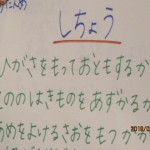 しちょう
ひがさをもっておともするか
とののはきものをあずかるか
あめをよけるさおをもつかか